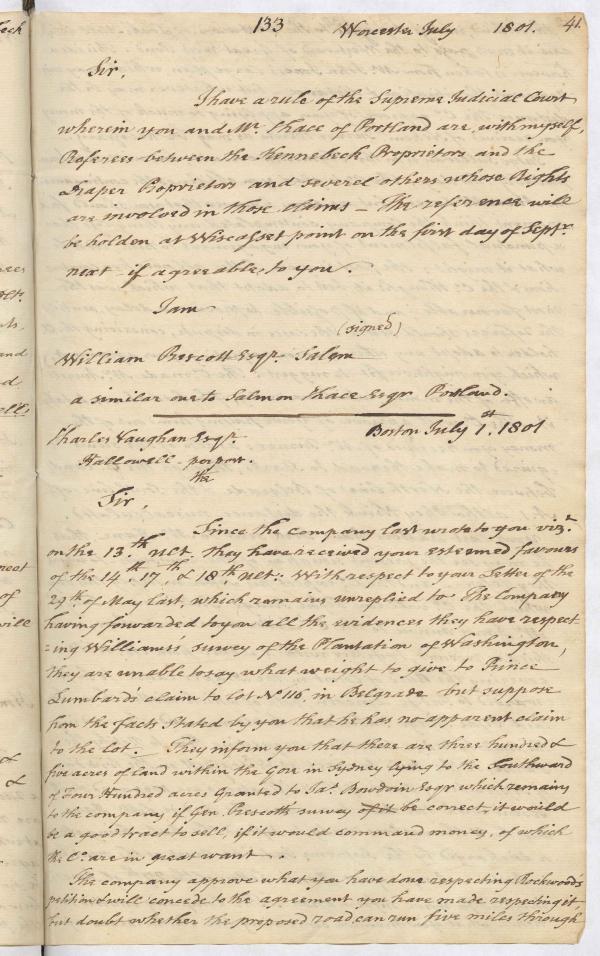 133 Worcester July 1801. 41.
Sir,
I have a rule of the Supreme Judicial Court
wherein you and Mr. Chace of Portland are, with myself,
Referees between the Kennebeck Proprietors and the
Draper Proprietors and severel others whose Rights
are involved in those claims – The reference will
be holden at Wiscasset point on the first day of Septr.
next – if agreeable, to you.
I am
(signed)
William Prescott Esqr. Salem
a similar one to Salmon Chace Esqr Portland.
Charles Vaughan Esqr. Boston July 1st. 1801
Hallowell – per post.
the
Sir,
Since the company last wrote to you vizt.
on the 13th ult. they have received your esteemed favours
of the 14th. 17th, & 18th ult: With respect to your Letter of the
29th. of May last, which remains unreplied to The Company
having forwarded to you all the evidences they have respect
=ing Williams's survey of the Plantation of Washington,
they are unable to say what weight to give to Prince
Lumbard's claim to lot No 116, in Belgrade but suppose
from the facts stated by you that he has no apparent claim
to the lot. – They inform you that there are three hundred &
five acres of land within the Gore in Sydney lying to the Southward
of Four Hundred acres granted to Jas. Bowdoin Esqr which remains
to the company, if Gen. Prescott's survey of it be correct, it would
be a good tract to sell, if it would command money, of which
the Co. are in great want.
The company approve what you have done respecting Rockwood's
petition & will concede to the agreement you have made respecting it,
but doubt whether the proposed road can run five miles through